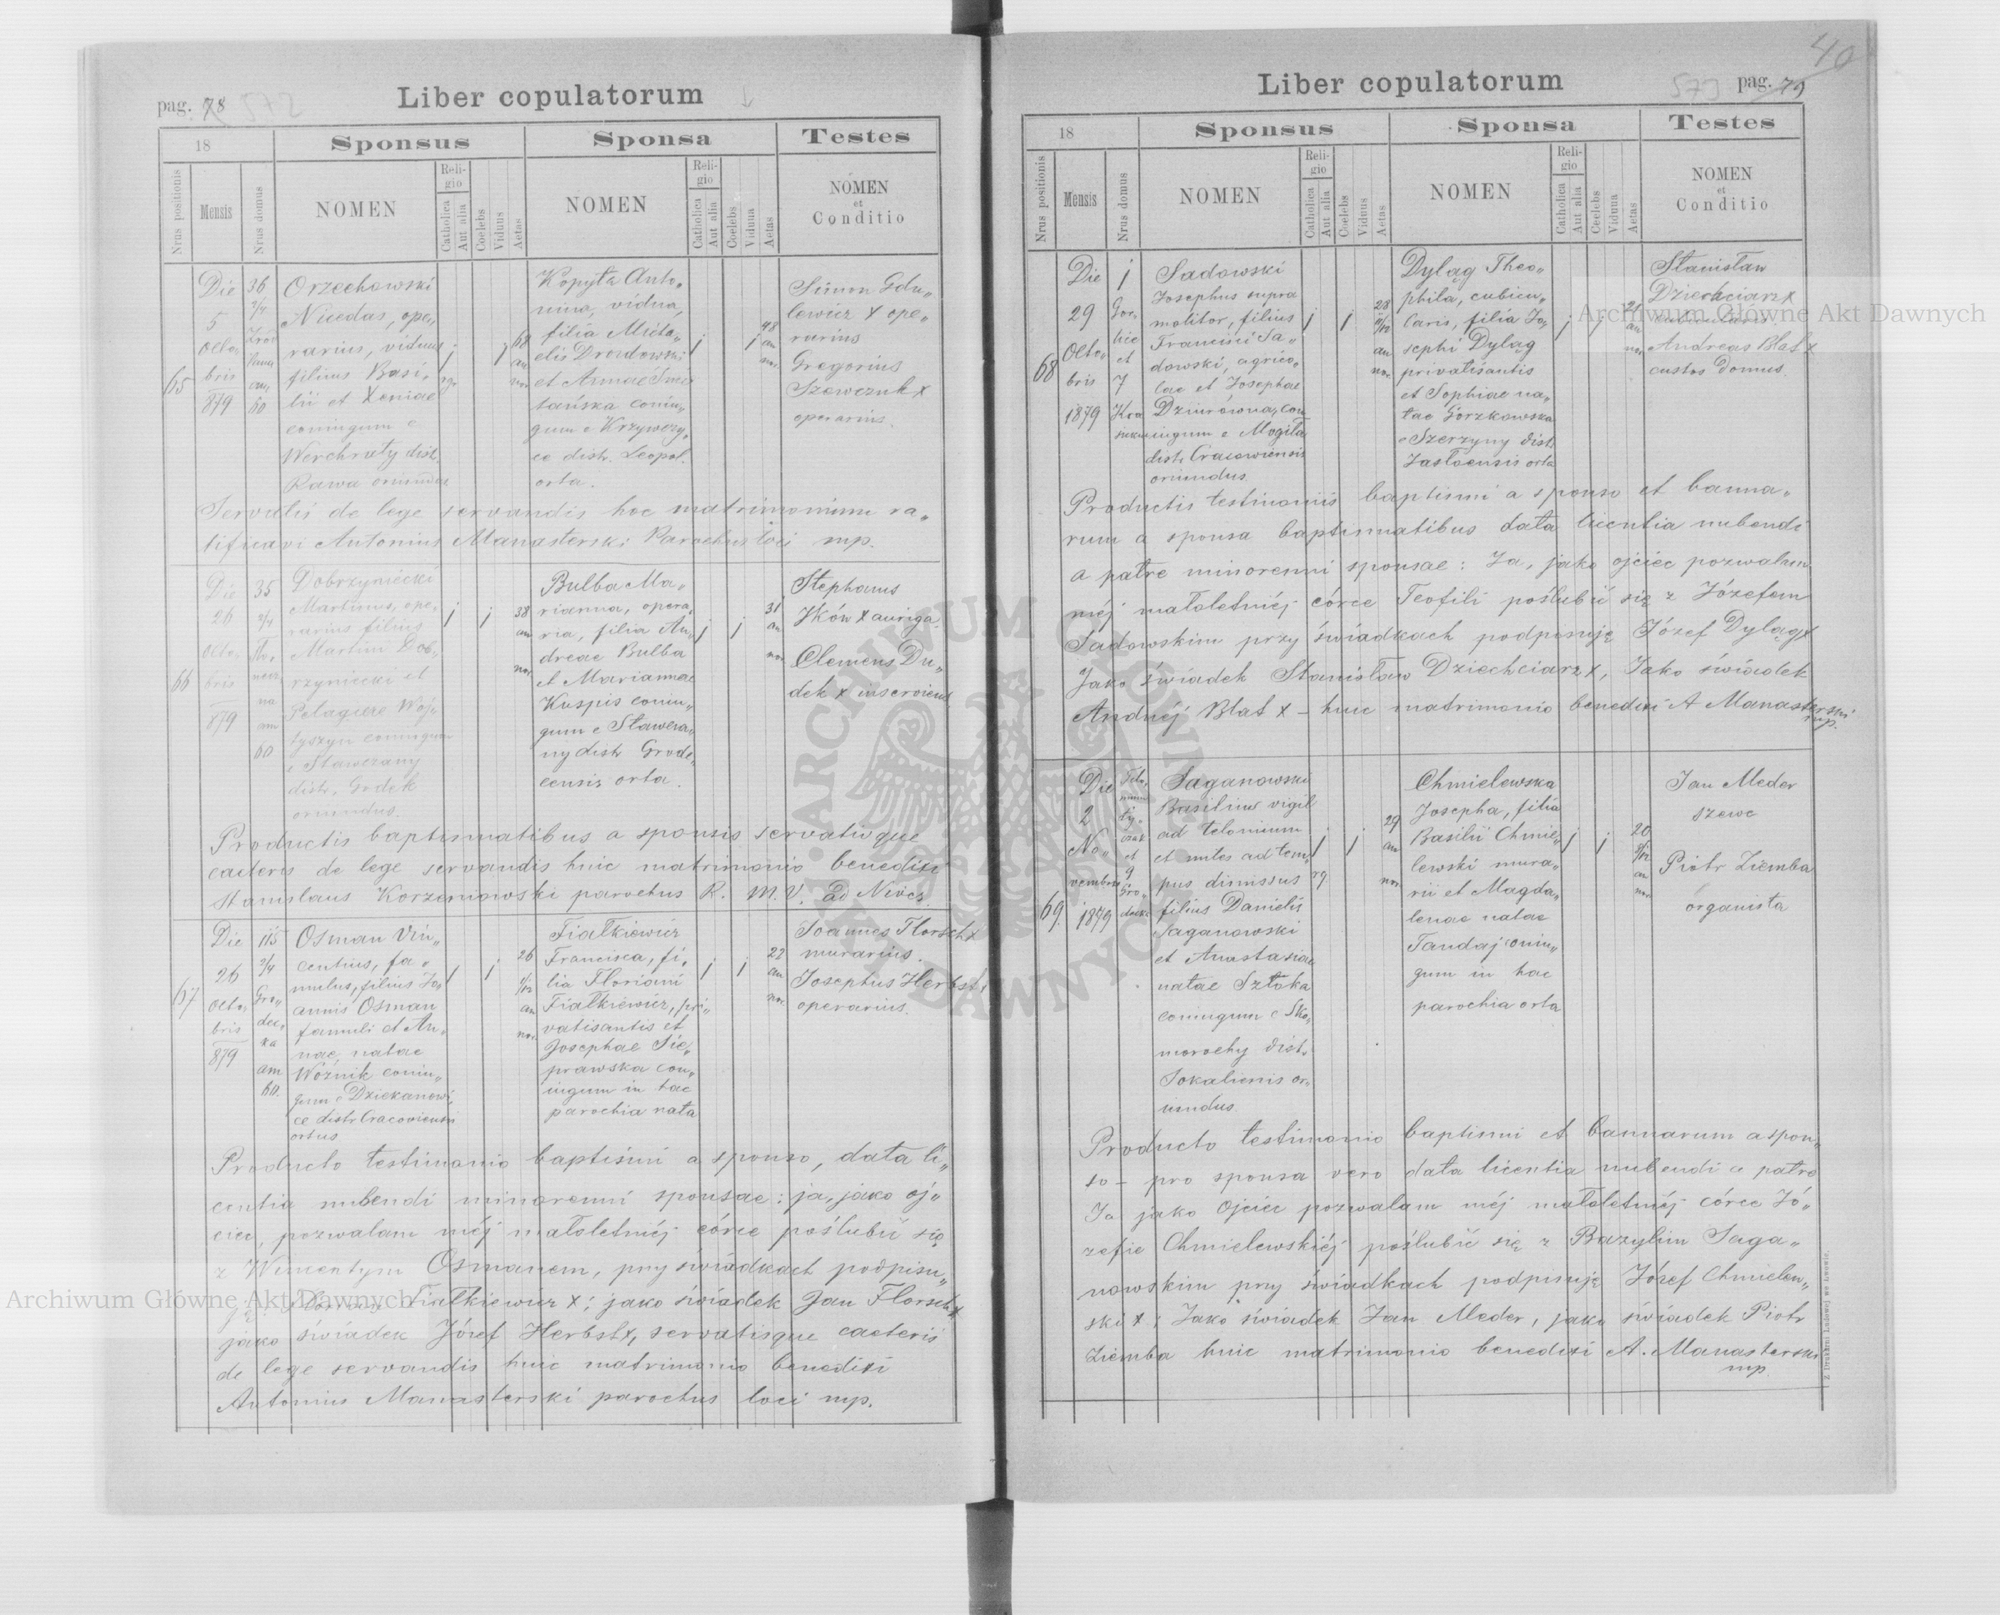 pag. 78 572
Liber copulatorum
18
Sponsus
Sponsa
Testes
Nrus positionis
Mensis
Nrus domus
NOMEN
Religio
Catholica
Aut alia
Coelebs
Viduus
Aetas
NOMEN
Religio
Catholica
Aut alia
Coelebs
Vidua
Aetas
NOMEN
et
Conditio
65
Die
5
Octo„
bris
879
36
2/4
Orzechowski
Nicedas, ope„
rarius, viduus
filius Basi„
lii et Xeniae
coniugum e
Werchraty dist.
Rawa oriundus
Kopyta Anto„
nina, vidua,
filia Micha„
elis Drozdowski
et Annae Smie„
tańska coniu„
gum e Krzywczy„
ce distr. Leopol.
orta.
Simon Gdu„
lewicz x ope„
rarius
Gregorius
Szewczuk x
operarius.
Servatis de lege servandis hoc matrimonium ra„
tificavi Antonius Manasterski Parochus loci mp.
66
Die
26
Octo„
bris
879
35
2/4
Dobrzyniecki
Martinus, ope„
rarius filius
Martini Dob„
rzyniecki et
Pelagiae Woj„
tyszyn coniugum
e Stawczany
distr. Grodek
oriundus.
38
an
nor
Bulba Ma„
rianna, opera„
ria, filia An„
dreae Bulba
et Mariannae
Kuspis coniu„
gum e Stawcza„
ny distr Grode„
censis orta.
31
an
nor
Stephanus
Ików x auriga.
Clemens Du„
dek x inserviens
Productis baptismatibus a sponsis servatisque
caeteris de lege servandis huic matrimonio benedixi
Stanislaus Korzeniowski parochus R. M. V. ad Nives.
67
Die
26
Octo„
bris
879
115
2/4
Gro„
dec„
ka
am
ba.
Osman Vin„
centius, fa„
mulus, filius Jo„
annis Osman
famuli et An„
nae, natae
Woźnik coniu„
gum e Dziekanowi„
ce distr Cracoviensis
ortus
26
1/12
an
nor.
Fiałkiewicz
Francisca, fi„
lia Floriani
Fiałkiewicz, pri„
vatisantis et
Josephae Sie„
prawska con„
iugum in hac
parochia nata
22
an
nor.
Joannes Florsch x
murarius.
Josephus Herbst x
operarius.
Producto testimonio baptismi a sponso, data li„
centia nubendi minorenni sponsae: ja, jako oj„
ciec, pozwalam méj małoletniéj córce poślubić się
z Wincentym Osmanem, przy świadkach podpisu„
ję Floryan Fiałkiewicz x; jako świadek Jan Florsch x
jako świadek Józef Herbst x, servatisque caeteris
de lege servandis huic matrimonio benedixi
Antonius Manasterski parochus loci mp.
40
Liber copulatorum
573 pag. 79
18
Sponsus
Sponsa
Testes
Nrus positionis
Mensis
Nrus domus
NOMEN
Religio
Catholica
Aut alia
Coelebs
Viduus
Aetas
NOMEN
Religio
Catholica
Aut alia
Coelebs
Vidua
Aetas
NOMEN
et
Conditio
68
Die
29
Octo„
bris
1879
Sadowski
Josephus supra
molitor, filius
Francisci Sa„
dowski, agrico„
lae et Josephae
Dziurówna, con„
iugum e Mogiła
distr. Cracowiensis
oriundus
28
11/12
an
nor.
Dyląg Theo„
phila, cubicu„
laris, filia Jo„
sephi Dyląg
privatisantis
et Sophiae na„
tae Gorzkowska
e Szerzyny dist.
Jasłoensis orta
Stanisław
Dziechciarz x
cubicularis.
Andreas Blat x
custos domus.
Productis testimoniis baptismi a sponso et banna„
rum a sponsa baptismatibus data licentia nubendi
a patre minorenni sponsae: Ja, jako ojciec pozwalam
méj małoletniéj córce Teofili poślubić się z Józefem
Sadowskim przy świadkach podpisuję Józef Dyląg x
Jako świadek Stanisław Dziechciarz x, Jako świadek
Andrzéj Blat x – huic matrimonio benedixi A Manasterski
mp.
69.
Die
2
No„
vembris
1879
Saganowski
Basilius vigil
ad telonium
et miles ad tem„
pus dimissus
filius Danielis
Saganowski
et Anastasiae
natae Sztoka
coniugum e Sko„
morochy dist.
Sokaliensis or„
iundus
29
an
nor
Chmielewska
Josepha, filia
Basilii Chmie„
lewski mura„
rii et Magda„
lenae natae
Tandaj coniu„
gum in hac
parochia orta
20
an
nor
Jan Meder
szewc
Piotr Ziemba
organista
Producto testimonio baptismi et bannarum a spon„
so – pro sponsa vero data licentia nubendi a patre
Ja jako Ojciec pozwalam méj małoletniéj córce Jó„
zefie Chmielewskiéj poślubić się z Bazylim Saga„
nowskim przy świadkach podpisuję Józef Chmielew„
ski x; Jako świadek Jan Meder, jako świadek Piotr
Ziemba huic matrimonio benedixi A. Manasterski
mp
Z Drukarni Ludowej we Lwowie.
Archiwum Główne Akt Dawnych
Archiwum Główne Akt Dawnych
ARCHIWUM GŁÓWNE AKT DAWNYCH